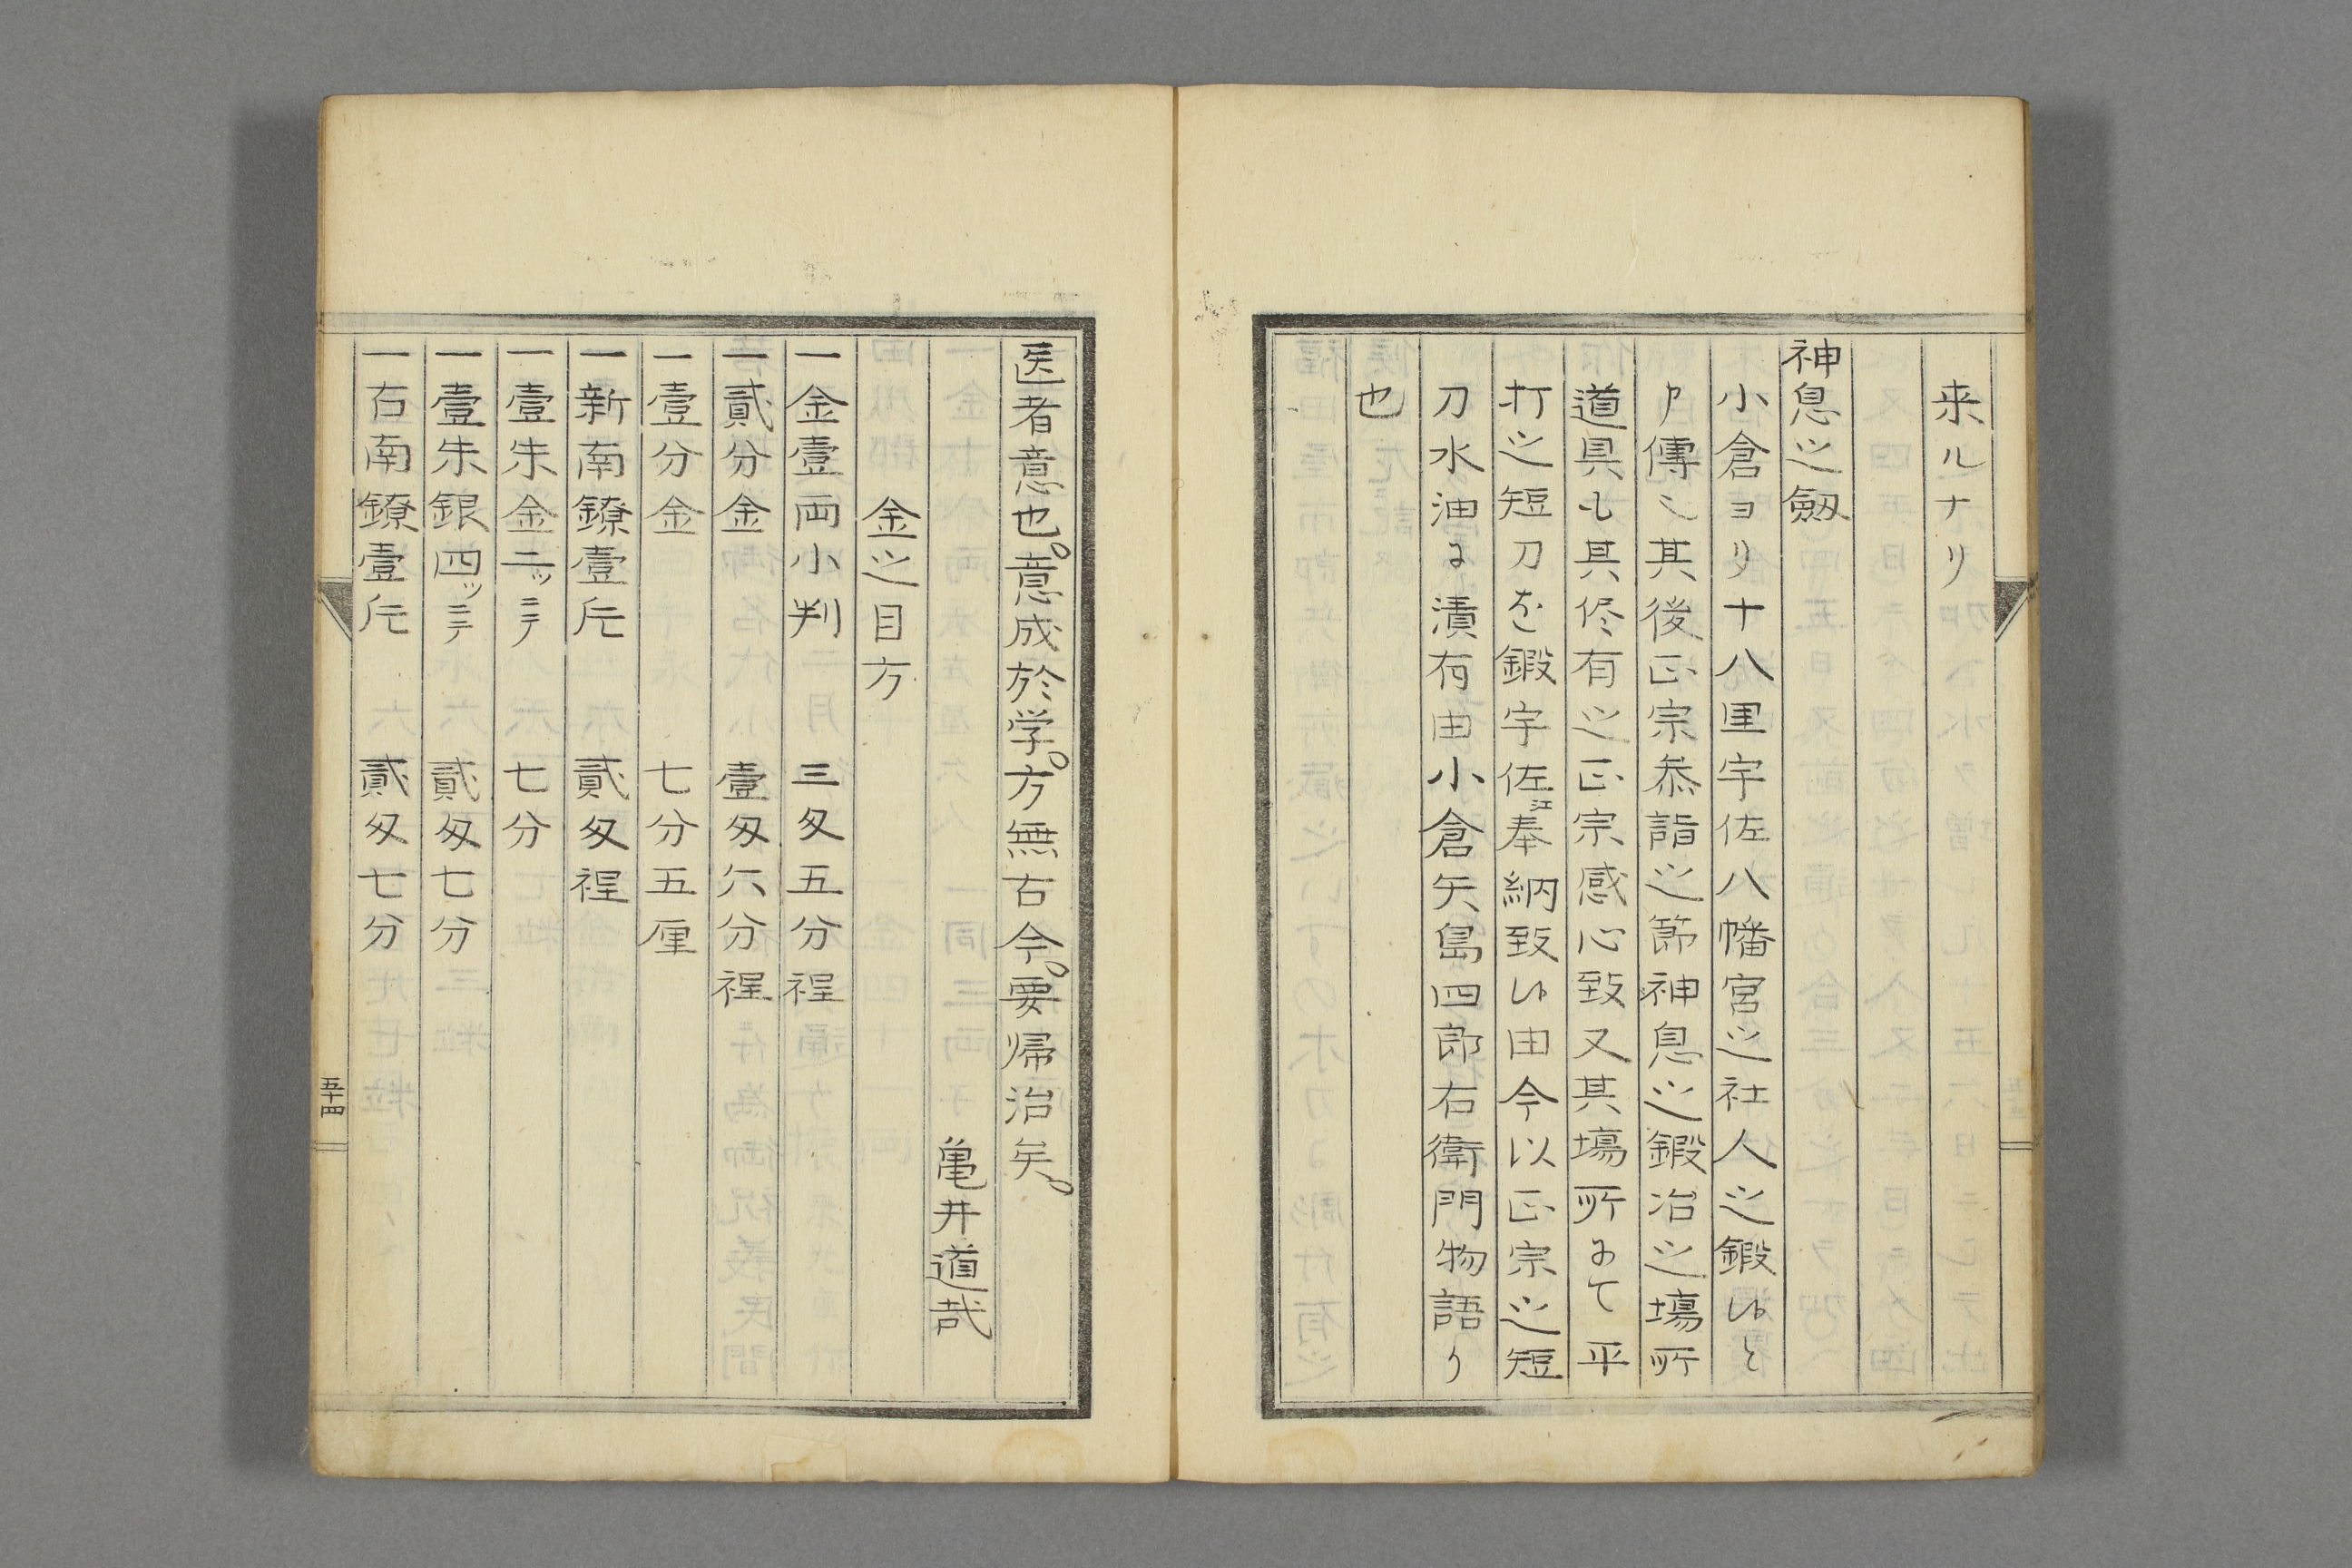 来ルナリ
神息之劔
小倉ヨリ十八里宇佐八幡宮之社人之鍛候と
申傳ヘ其後正宗参詣之節神息之鍛冶之場所
道具も其侭有之正宗感心致又其場所にて平
打之短刀を鍛宇佐江奉納致候由今以正宗之短
刀水油に漬有由小倉矢島四郎右衛門物語り
也
医者意也。意成於学。方無古今。要帰治矣。
亀井道哉
金之目方
一金壹両小判 三匁五分程
一貳分金 壹匁六分程
一壹分金 七分五厘
一新南鐐壹斤 貳匁程
一壹朱金二ッニテ 七分
一壹朱銀四ッニテ 貳匁七分
一古南鐐壹斤 貳匁七分
五十四